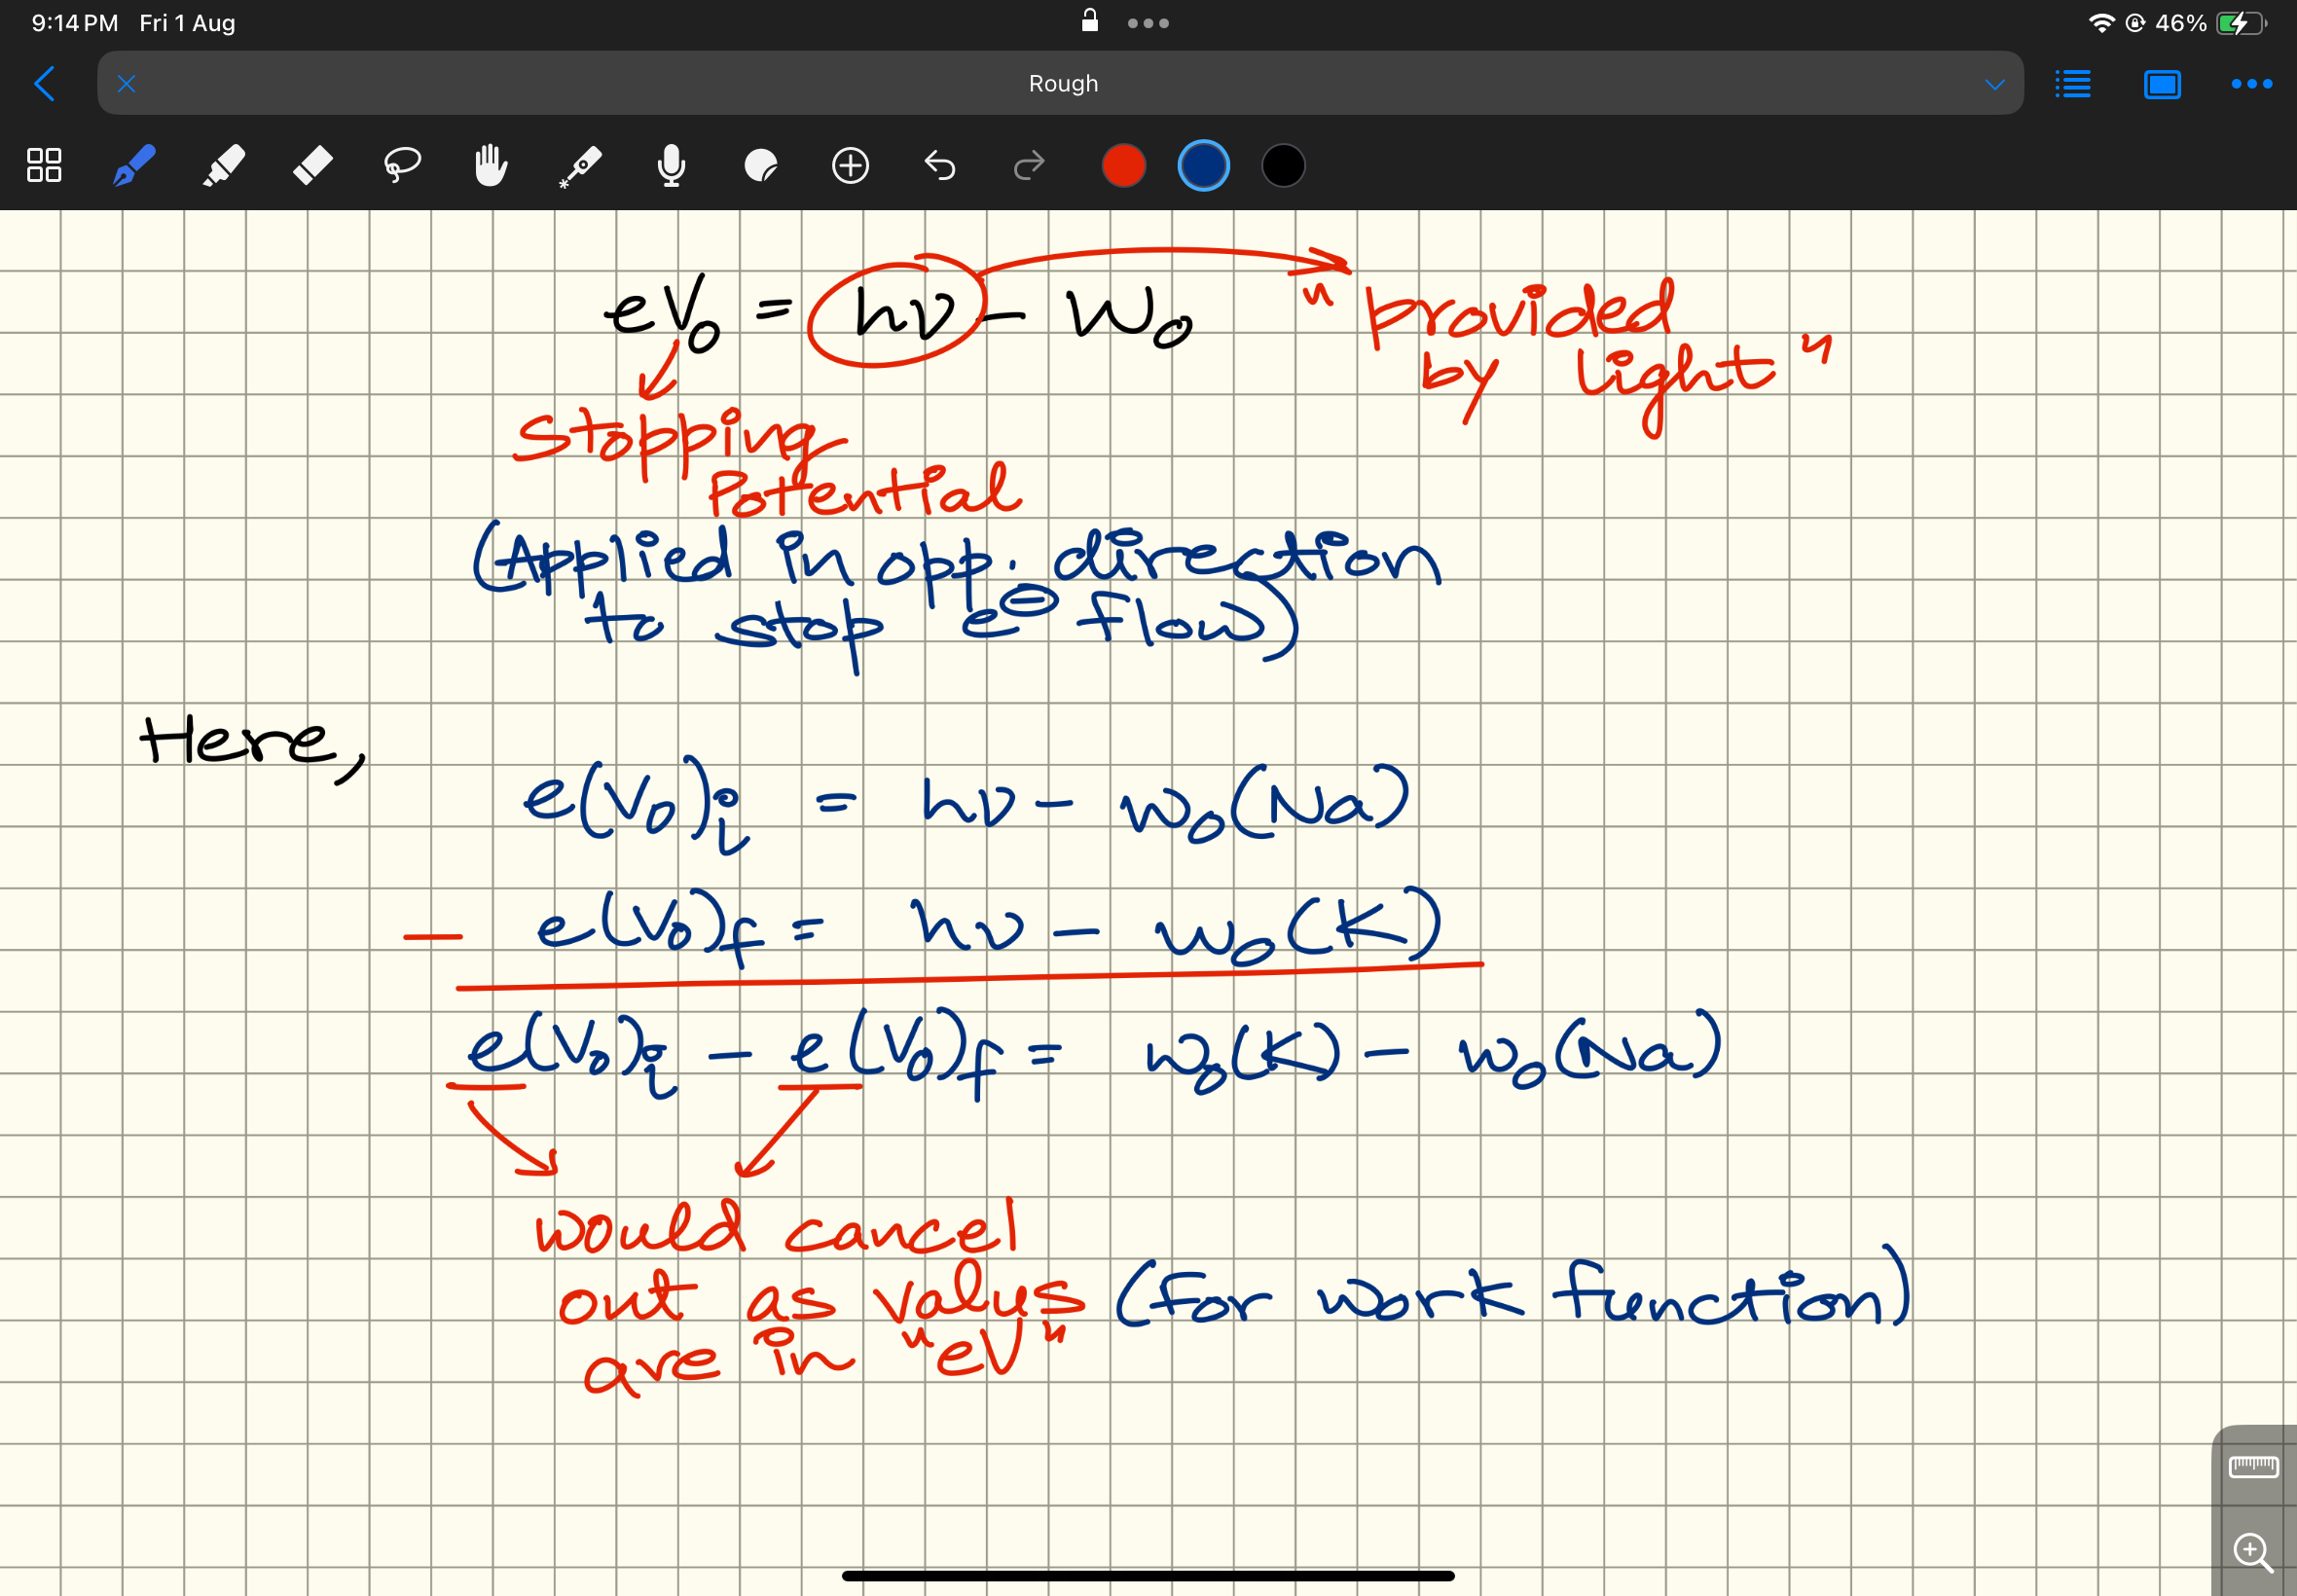 9:14 PM Fri 1 Aug
46%
Rough
eV₀ = hν − W₀
"Provided
by light"
stopping
Potential
(Applied in opp. direction
to stop e⊖ flow)
Here,
e(V₀)i = hν − w₀(Na)
− e(V₀)f = hν − w₀(K)
e(V₀)i − e(V₀)f = w₀(K) − w₀(Na)
would cancel
out as values (for work function)
are in "eV"